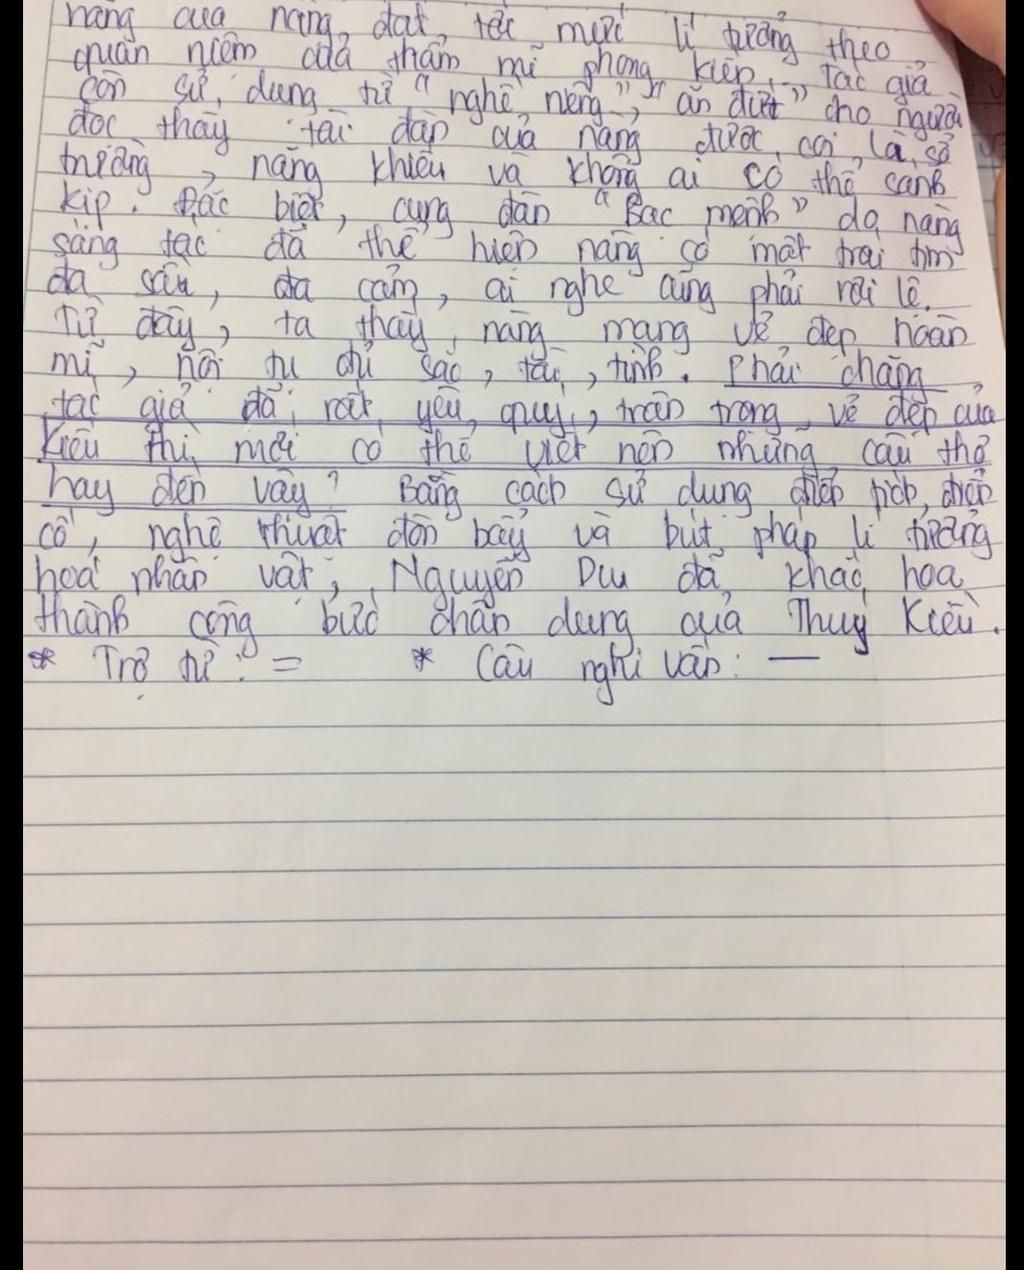 năng của nàng đạt tới mức lí tưởng theo
quan niệm của thẩm mĩ phong kiến. Tác giả
còn sử dụng từ "nghề riêng", "ăn đứt" cho người
đọc thấy tài đàn của nàng được coi là sở
trường, năng khiếu và không ai có thể canh
kịp. Đặc biệt, cung đàn "Bạc mệnh" do nàng
sáng tác đã thể hiện nàng có một trái tim
đa sầu, đa cảm, ai nghe cũng phải rơi lệ.
Từ đây, ta thấy nàng mang vẻ đẹp hoàn
mĩ, hội tụ đủ sắc, tài, tình. Phải chăng,
tác giả đã rất yêu quý, trân trọng vẻ đẹp của
Kiều thì mới có thể viết nên những câu thơ
hay đến vậy? Bằng cách sử dụng điển tích, điển
cố, nghệ thuật đòn bẩy và bút pháp lí tưởng
hoá nhân vật, Nguyễn Du đã khắc hoạ
thành công bức chân dung của Thuý Kiều.
* Trợ từ: = * Câu nghi vấn: —